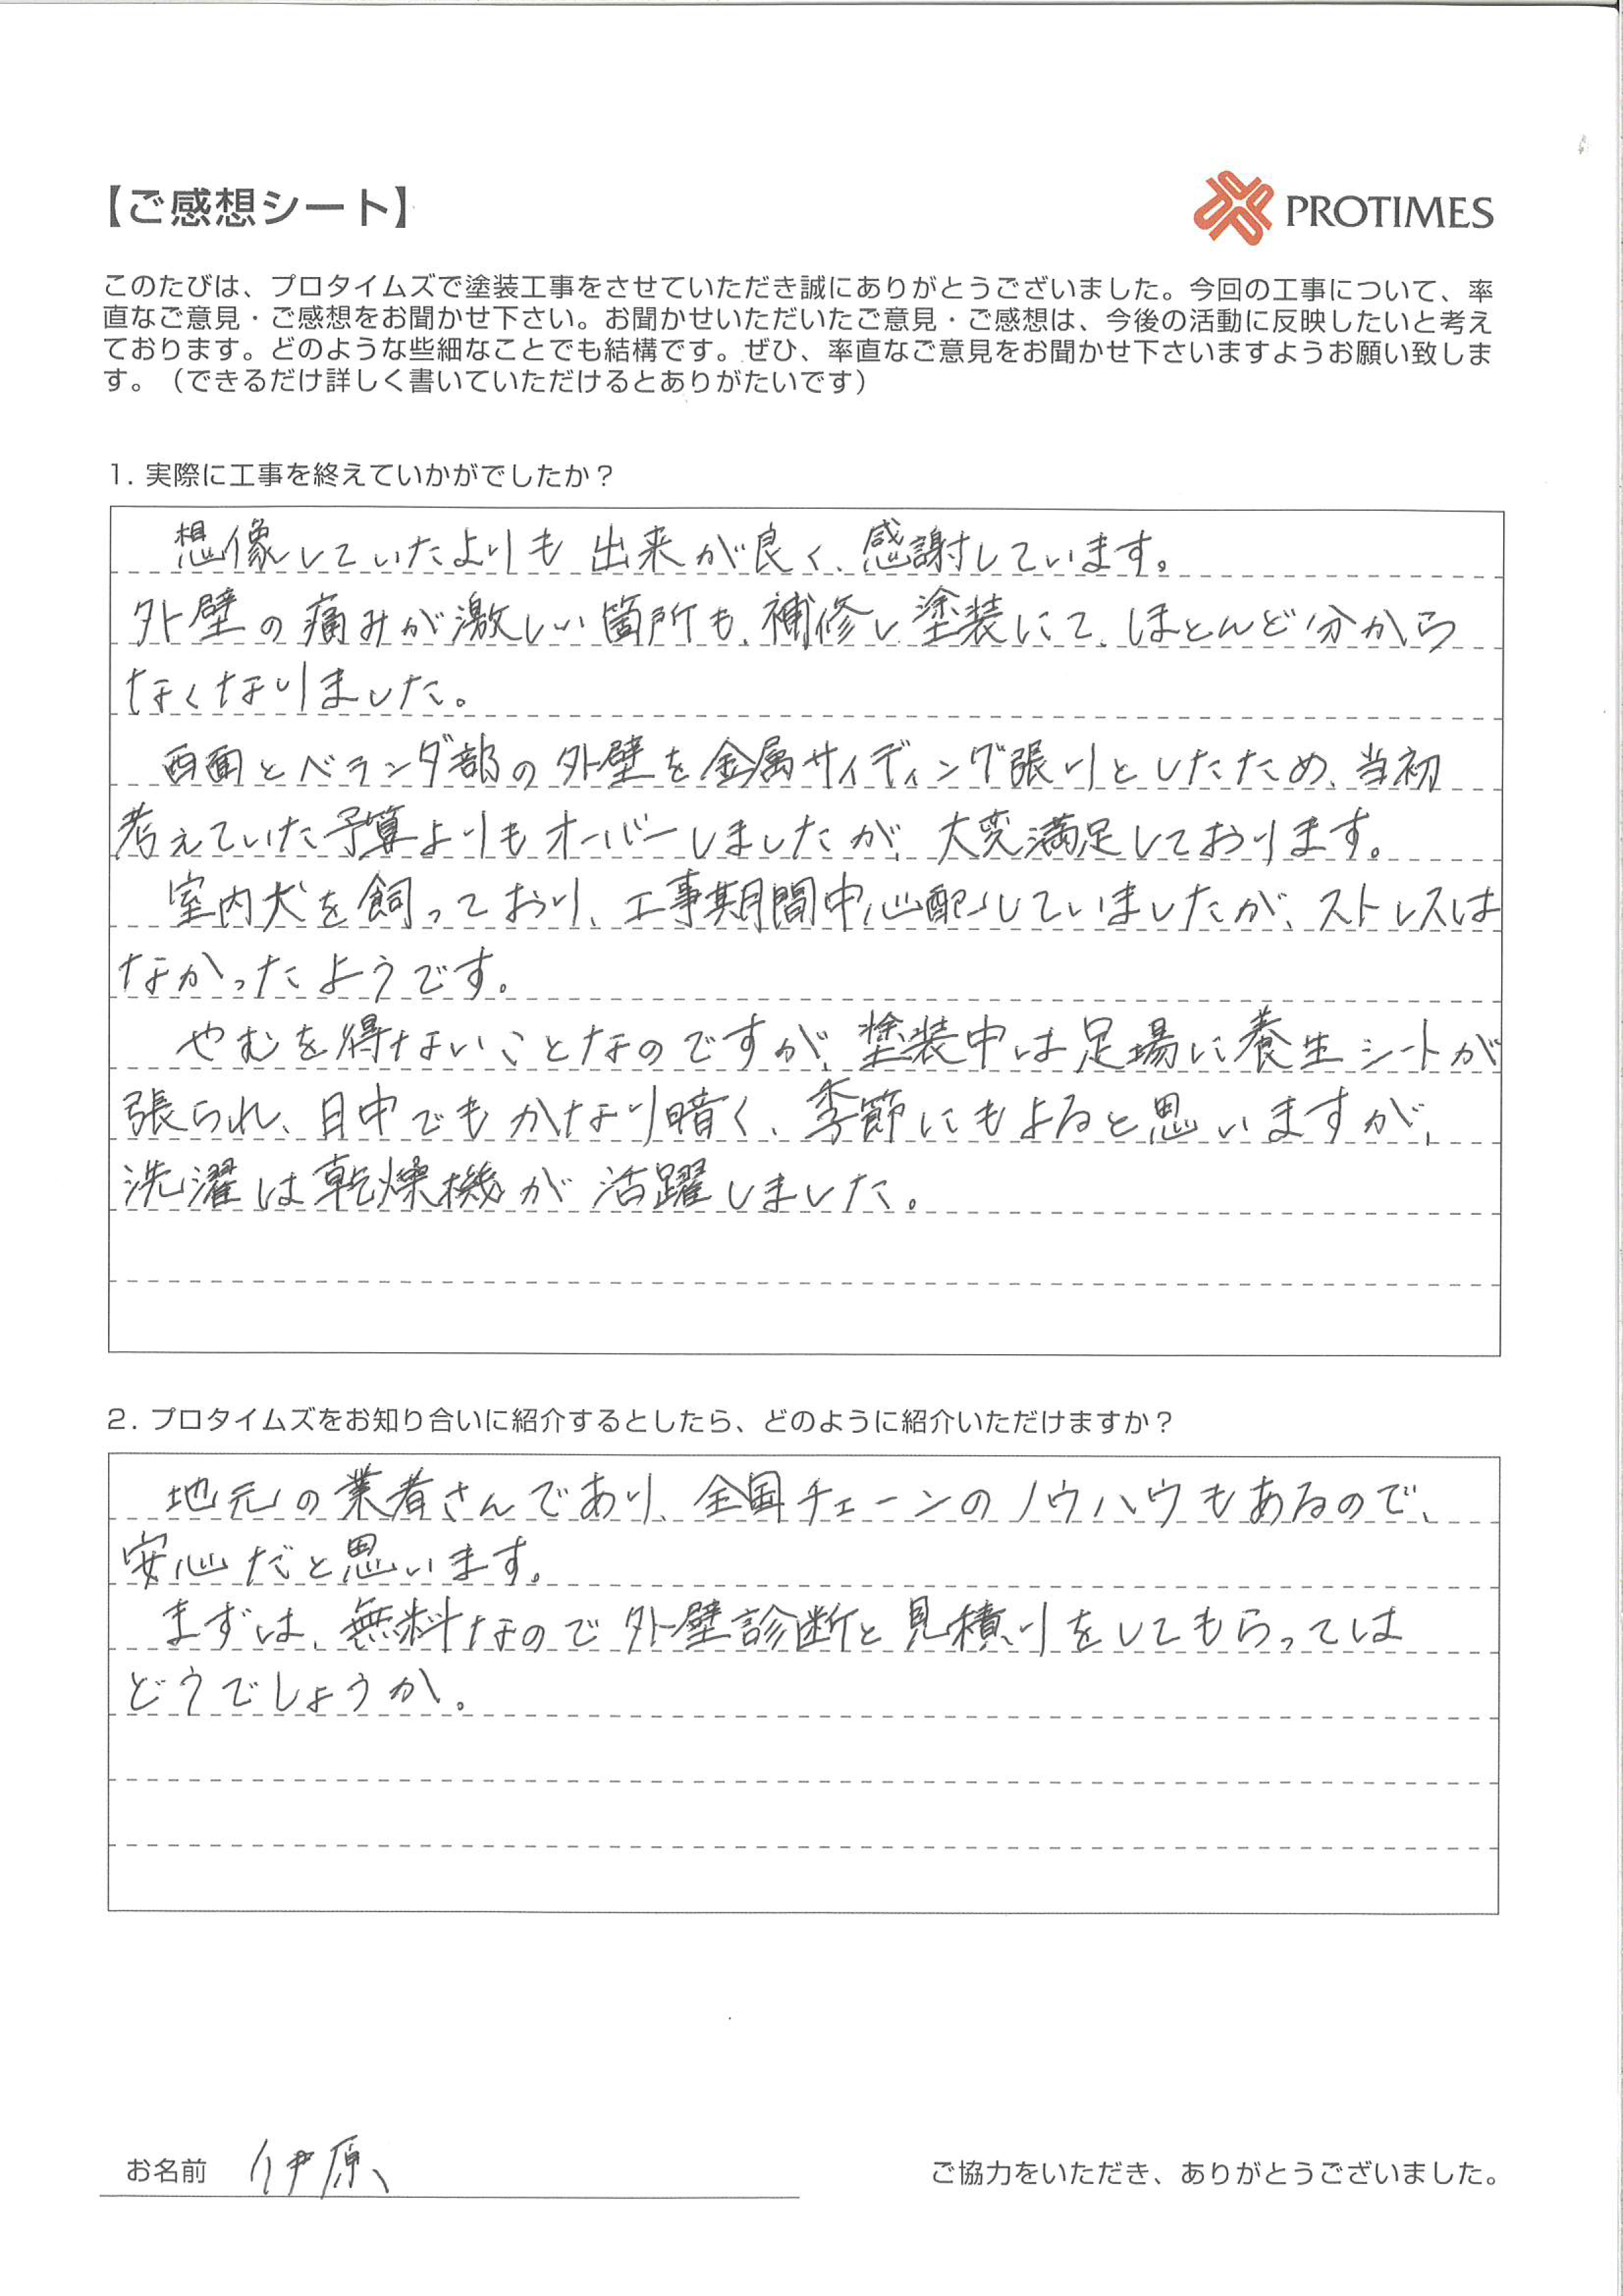 【ご感想シート】
PROTIMES
このたびは、プロタイムズで塗装工事をさせていただき誠にありがとうございました。今回の工事について、率
直なご意見・ご感想をお聞かせ下さい。お聞かせいただいたご意見・ご感想は、今後の活動に反映したいと考え
ております。どのような些細なことでも結構です。ぜひ、率直なご意見をお聞かせ下さいますようお願い致しま
す。（できるだけ詳しく書いていただけるとありがたいです）
1. 実際に工事を終えていかがでしたか？
想像していたよりも出来が良く、感謝しています。
外壁の痛みが激しい箇所も、補修し塗装にて、ほとんど分から
なくなりました。
西面とベランダ部の外壁を金属サイディング張りとしたため、当初
考えていた予算よりもオーバーしましたが、大変満足しております。
室内犬を飼っており、工事期間中心配していましたが、ストレスは
なかったようです。
やむを得ないことなのですが、塗装中は足場に養生シートが
張られ、日中でもかなり暗く、季節にもよると思いますが、
洗濯は乾燥機が活躍しました。
2. プロタイムズをお知り合いに紹介するとしたら、どのように紹介いただけますか？
地元の業者さんであり、全国チェーンのノウハウもあるので、
安心だと思います。
まずは、無料なので外壁診断と見積りをしてもらっては
どうでしょうか。
お名前 伊原
ご協力をいただき、ありがとうございました。